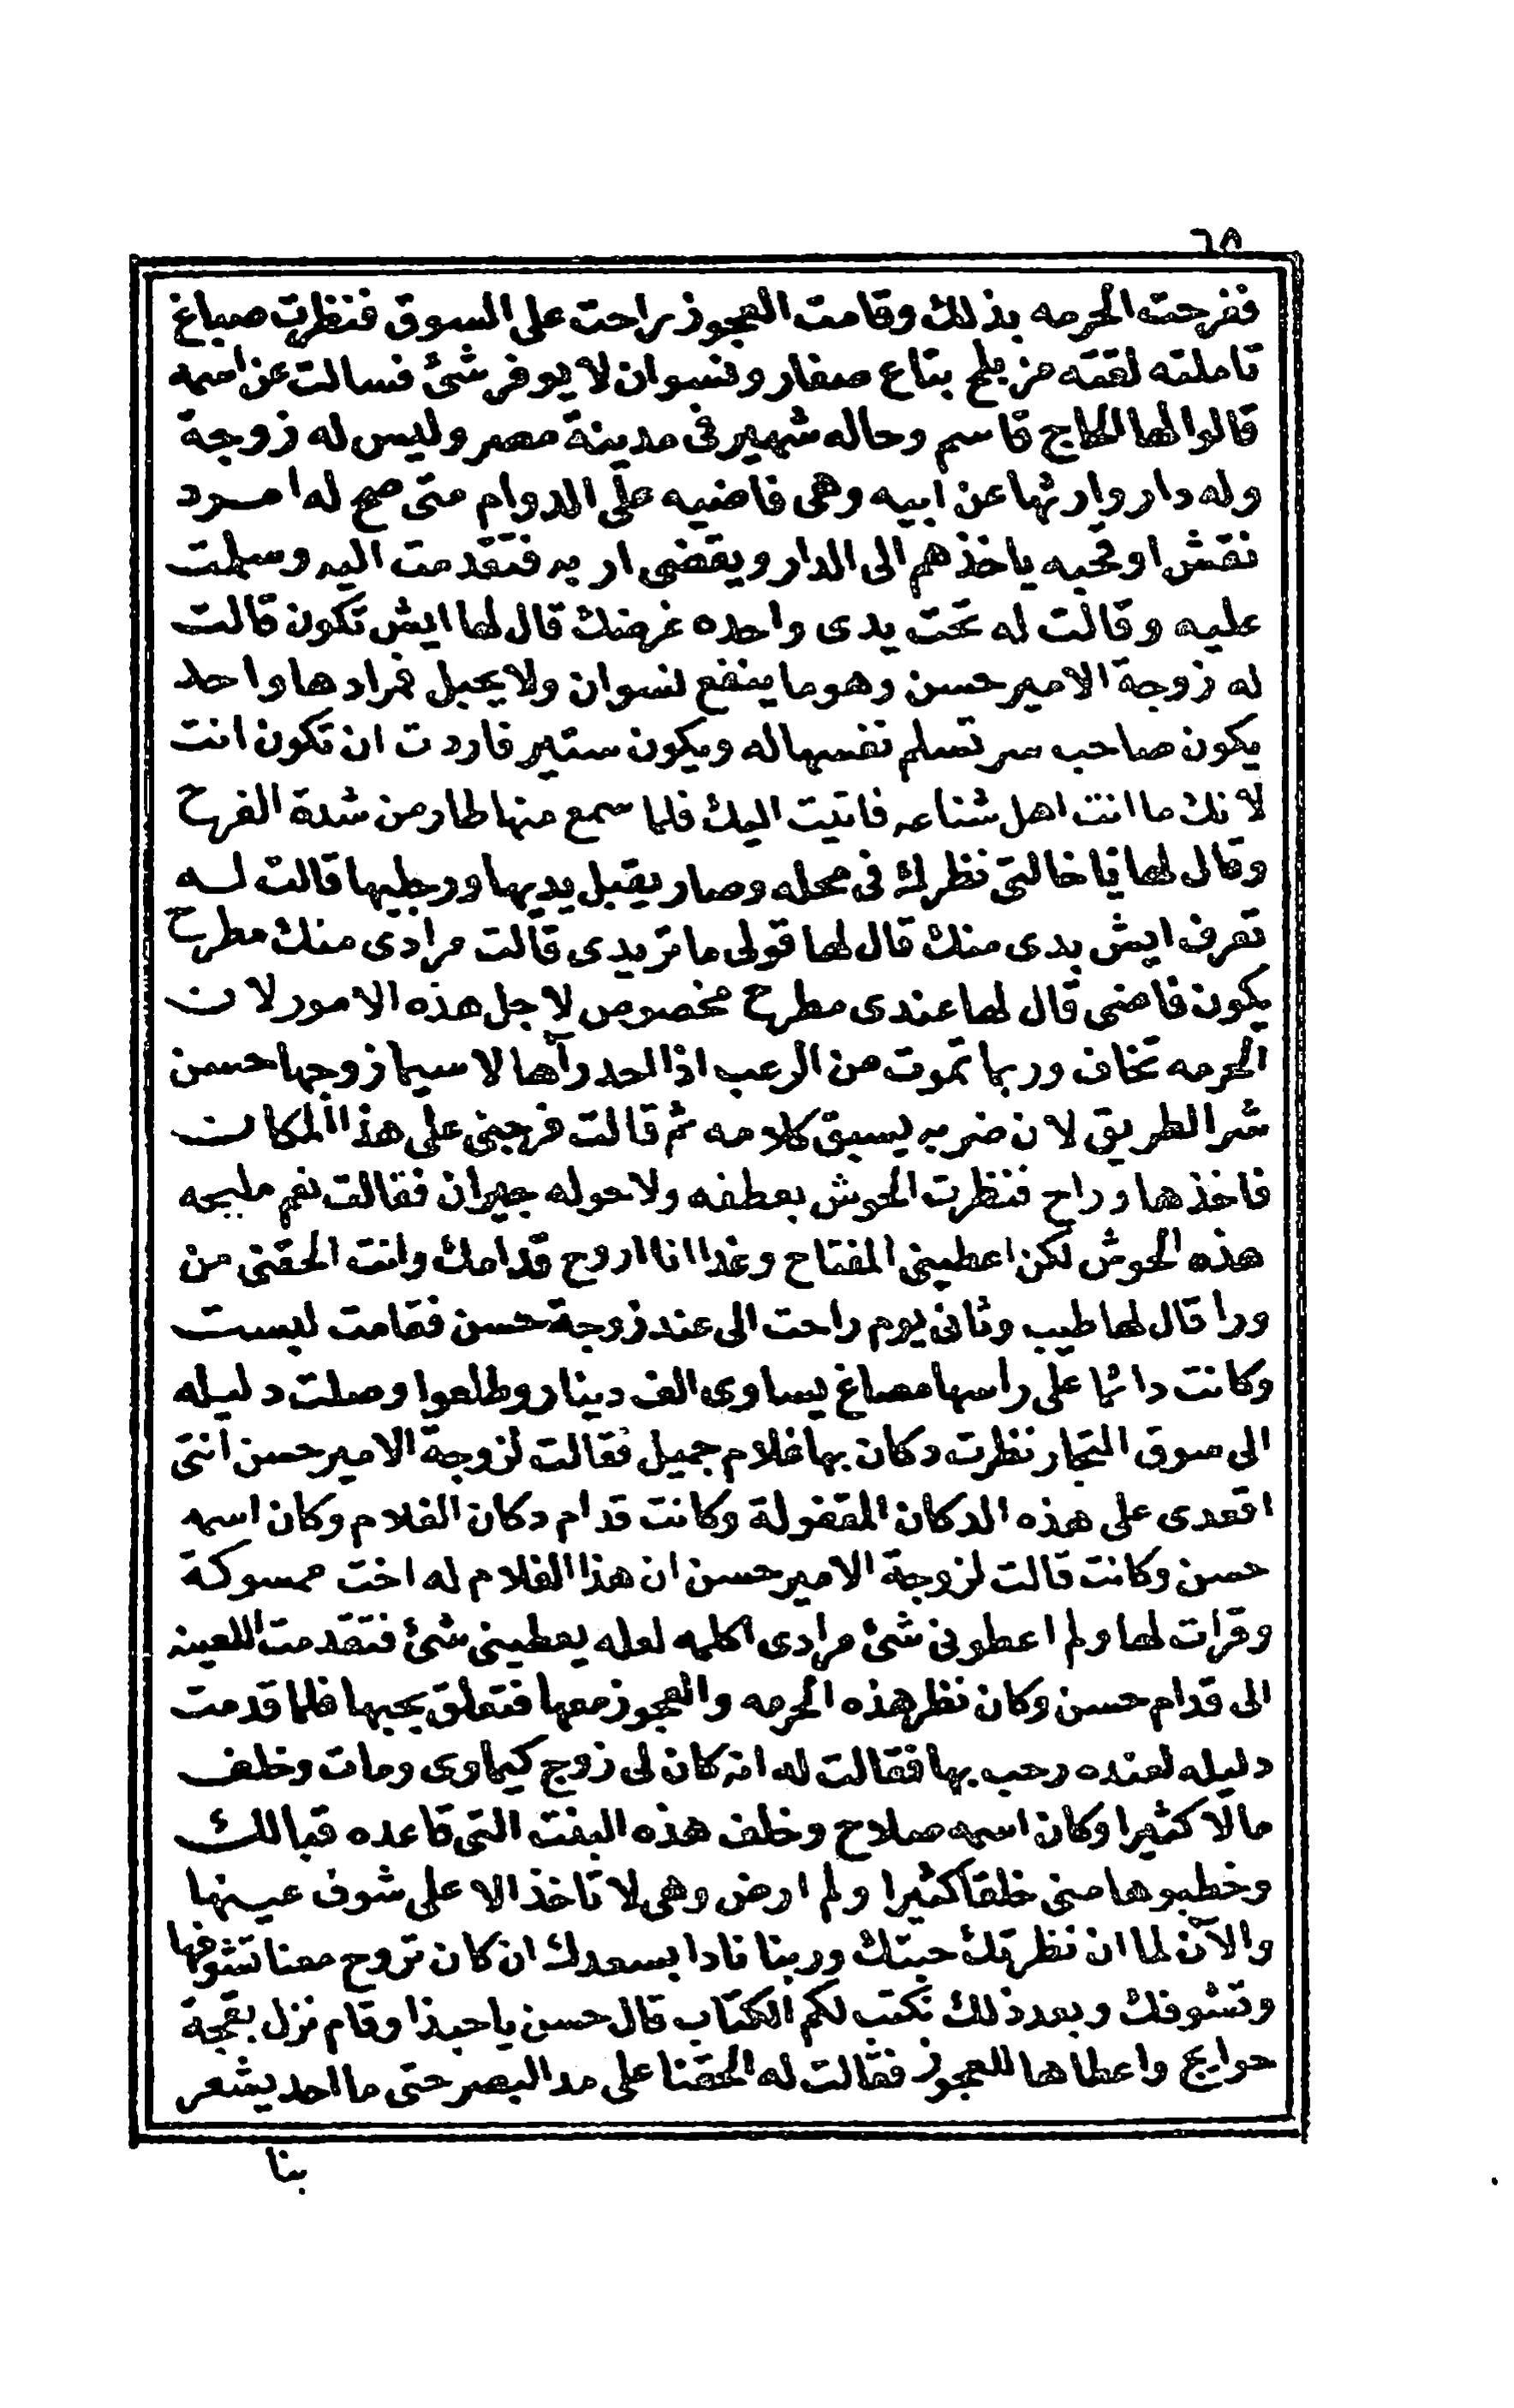 ٦٥
ففرحت الحرمه بذلك وقامت العجوز راحت على السوق فنظرت صباغ
تاملته لقته مزبلح بتاع صغار ونسوان لا يوفر شئ فسالت عن اسمه
قالوا لها الحاج قاسم وحاله شهير فى مدينة مصر وليس له زوجة
وله دار وارثها عن ابيه وهى فاضيه على الدوام متى صح له امرد
نقش او قحبه ياخذهم الى الدار ويقضى اربه فتقدمت اليه وسلمت
عليه وقالت له تحت يدى واحده غرضك قال لها ايش تكون قالت
له زوجة الامير حسن وهو ما ينفع لنسوان ولا يحبل فمرادها واحد
يكون صاحب سر تسلم نفسها له ويكون ستير فاردت ان تكون انت
لانك ما انت اهل شناعه فاتيت اليك فلما سمع منها طار من شدة الفرح
وقال لها يا خالتى نظرك فى محله وصار يقبل يديها ورجليها قالت له
تعرف ايش بدى منك قال لها قولى ما تريدى قالت مرادى منك مطرح
يكون فاضى قال لها عندى مطرح مخصوص لاجل هذه الامور لان
الحرمه تخاف وربما تموت من الرعب اذا احد رآها لا سيما زوجها حسن
شر الطريق لان ضربه يسبق كلامه ثم قالت فرجنى على هذا المكان
فاخذها وراح فنظرت الحوش بعطفه ولا حوله جيران فقالت نعم مليحه
هذه الحوش لكن اعطينى المفتاح وغدا انا اروح قدامك وانت الحقنى من
ورا قال لها طيب وثانى يوم راحت الى عند زوجة حسن فقامت لبست
وكانت دائما على راسها مصاغ يساوى الف دينار وطلعوا وصلت دليله
الى سوق التجار نظرت دكان بها غلام جميل فقالت لزوجة الامير حسن انتى
اقعدى على هذه الدكان المقفولة وكانت قدام دكان الغلام وكان اسمه
حسن وكانت قالت لزوجة الامير حسن ان هذا الغلام له اخت ممسوكة
وقرات لها ولم اعطونى شئ مرادى اكلمه لعله يعطينى شئ فتقدمت اللعينه
الى قدام حسن وكان نظر هذه الحرمه والعجوز معها فتعلق بحبها فلما قدمت
دليله لعنده رحب بها فقالت له انه كان لى زوج كيماوى ومات وخلف
مالا كثيرا وكان اسمه صلاح وخلف هذه البنت التى قاعده قبالك
وخطبوها منى خلقا كثيرا ولم ارض وهى لا تاخذ الا على شوف عينها
والآن لما ان نظرتك حبتك وربنا نادا بسعدك ان كان تروح معنا تشوفها
وتشوفك وبعد ذلك نكتب لكم الكتاب قال حسن يا حبذا وقام نزل بقجة
حوايج واعطاها للعجوز فقالت له الحقنا على مد البصر حتى ما احد يشعر
بنا